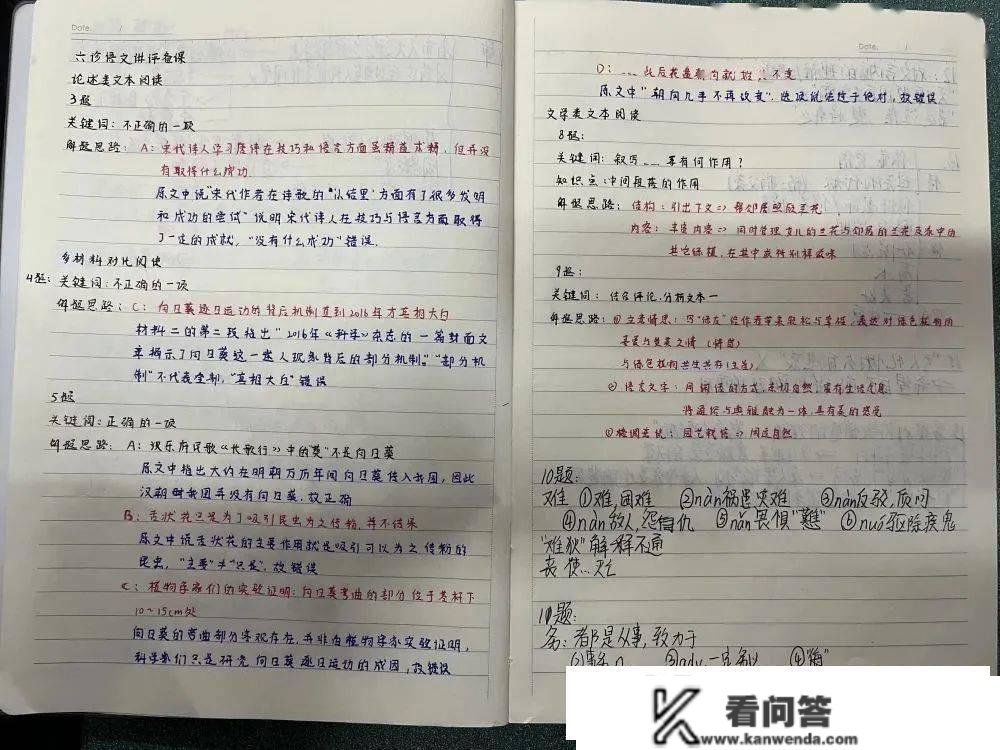 Date. /
六诊语文讲评备课
论述类文本阅读
3题
关键词：不正确的一项
解题思路：A：宋代诗人学习唐诗在技巧和语言方面虽精益求精，但并没
有取得什么成功
原文中说“宋代作者在诗歌的‘小结里’方面有了很多发明
和成功的尝试”说明宋代诗人在技巧与语言方面取得
了一定的成就，“没有什么成功”错误.
多材料对比阅读
4题：关键词：不正确的一项
解题思路：C：向日葵逐日运动的背后机制直到2016年才真相大白
材料二的第二段指出“2016年《科学》杂志的一篇封面文
章揭示了向日葵这一迷人现象背后的部分机制”“部分机
制”不代表全部，“真相大白”错误
5题
关键词：正确的一项
解题思路：A：汉乐府民歌《长歌行》中的葵”不是向日葵
原文中指出大约在明朝万历年间向日葵传入我国，因此
汉朝时我国并没有向日葵，故正确
B：舌状花只是为了吸引昆虫为之传粉，并不结果
原文中说舌状花的主要作用就是吸引可以为之传粉的
昆虫，“主要”≠“只是”，故错误
C：植物学家们的实验证明：向日葵弯曲的部分位于茎杆下
10~15cm处
向日葵的弯曲部分客观存在，并非由植物学家实验证明，
科学家们只是研究向日葵逐日运动的成因，故错误
Date. /
D：……此后花盘朝向就 ……不变
原文中“朝向几乎不再改变”，选项说法过于绝对，故错误
文学类文本阅读
8题：
关键词：叙写……享有何作用？
知识点：中间段落的作用
解题思路：结构：引出下文=>帮邻居照顾兰花
内容：丰富内容=>同时管理女儿的兰花与邻居的兰花及家中的
其它绿植，在其中感特别样滋味
9题：
关键词：结合评论，分析文本一
解题思路：①立意情思：写“绿友”给作者带来轻松与幸福，表达对绿色植物的
喜爱与赞美之情（情思）
与绿色植物共生共存（立意）
②语言文字：用 的方式，亲切自然，富有生活气息
将通俗与典雅融为一体，具有美的感觉
③格调 ：园艺栽培=>闲适自然
10题：
难 ①难，困难 ②nàn祸患灾难 ③nàn反驳，质问
④nàn敌人，怨 仇 ⑤nǎn畏惧“戁” ⑥nuó驱除疾鬼
“难狄”解释不通
丧 使…灭亡
11题：
务：都是从事，致力于
看问答
www.kanwenda.com